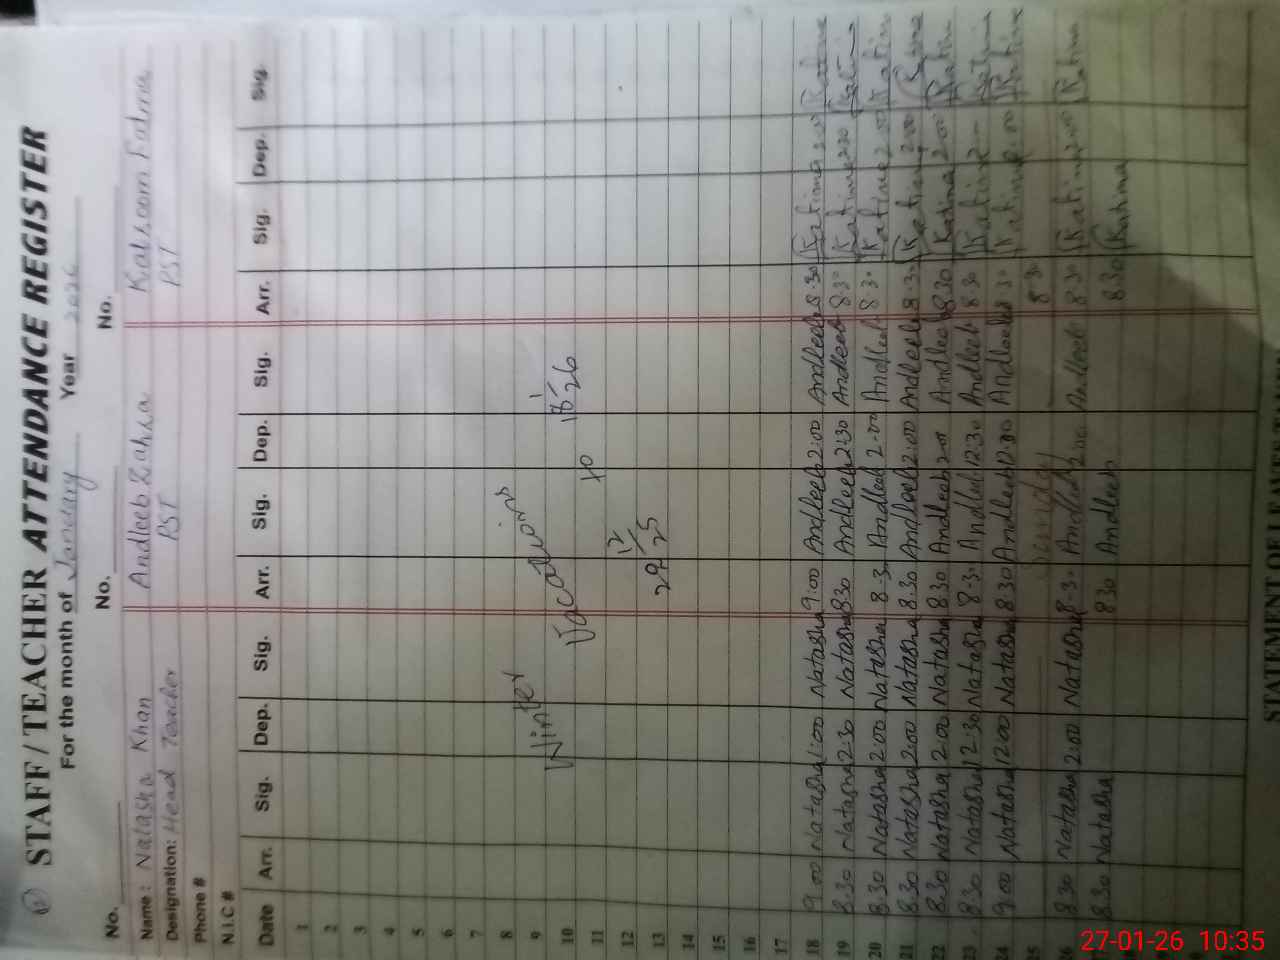 STAFF / TEACHER ATTENDANCE REGISTER
For the month of January Year 2026
No. No. No.
Name: Natasha Khan Andleeb Zahra Kalsoom Fatma
Designation: Head Teacher PST PST
Phone #
N.I.C #
Date Arr. Sig. Dep. Sig. Arr. Sig. Dep. Sig. Arr. Sig. Dep. Sig.
1
2
3
4
5
6
7
8
9
10
11
12
13
Winter Vacations
29 12 25 to 18 1 26
14
15
16
17
18 9:00 Natasha 1:00 Natasha 9:00 Andleeb 2:00 Andleeb 8:30
19 8:30 Natasha 2:30 Natasha 8:30 Andleeb 2:30 Andleeb 8:30
20 8:30 Natasha 2:00 Natasha 8:30 Andleeb 2:00 Andleeb 8:30 2:00
21 8:30 Natasha 2:00 Natasha 8:30 Andleeb 2:00 Andleeb 8:30 2:00
22 8:30 Natasha 2:00 Natasha 8:30 Andleeb 2:00 Andleeb 8:30 2:00
23 8:30 Natasha 12:30 Natasha 8:30 Andleeb 12:30 Andleeb 8:30
24 9:00 Natasha 12:00 Natasha 8:30 Andleeb Andleeb
25 Sunday 8:30
8:30 Natasha 2:00 Natasha 8:30 Andleeb 2:00 Andleeb 8:30 2:00
8:30 Natasha 8:30 Andleeb 8:30
27-01-26 10:35